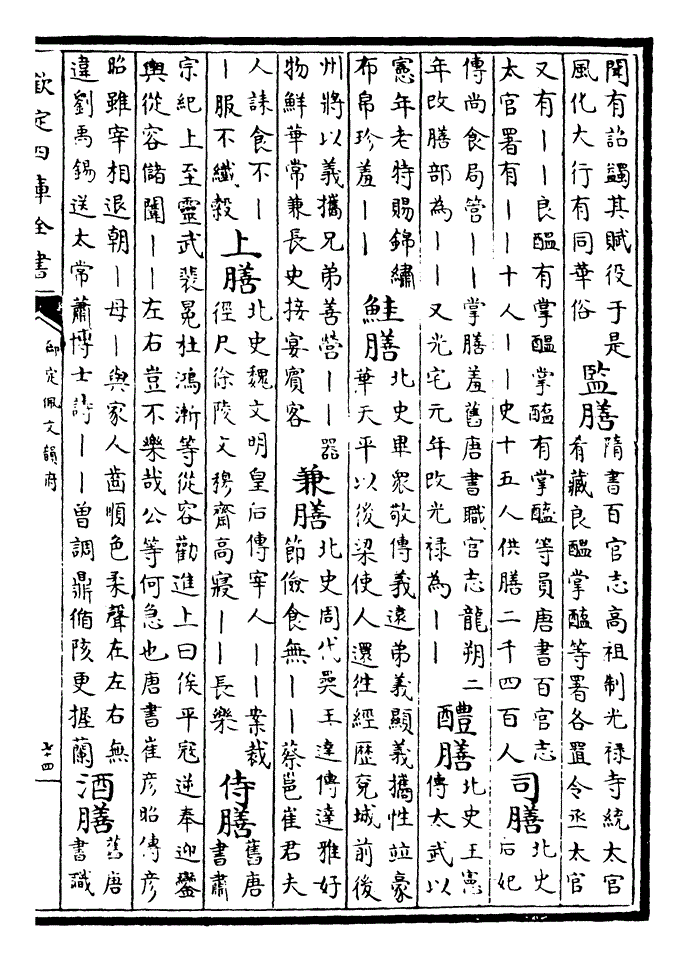 聞有詔蠲其賦役于是
風化大行有同華俗
監膳
隋書百官志髙祖制光禄寺統太官
肴藏良醞掌醢等署各置令丞太官
又有――良醞有掌醞掌醢有掌醢等員唐書百官志
太官署有――十人――史十五人供膳二千四百人
司膳
北史
后妃
傳尚食局管――掌膳羞舊唐書職官志龍朔二
年改膳部為――又光宅元年改光禄為――
醴膳
北史王憲
傳太武以
憲年老特賜錦繡
布帛珍羞――
鮭膳
北史畢衆敬傳義遠弟義顯義攜性並豪
華天平以後梁使人還往經歴兗城前後
州將以義攜兄弟善營――器
物鮮華常兼長史接宴賓客
兼膳
北史周代奰王達傳達雅好
節儉食無――蔡邕崔君夫
人誄食不―
―服不纖縠
上膳
北史魏文明皇后傳宰人――案裁
徑尺徐陵文穆齋高寢――長樂
侍膳
舊唐
書肅
宗紀上至靈武裴冕杜鴻漸等從容勸進上曰俟平寇逆奉迎鑾
輿從容儲闈――左右豈不樂哉公等何急也唐書崔彦昭傳彦
昭雖宰相退朝―母―與家人齒順色柔聲在左右無
違劉禹錫送太常蕭博士詩――曾調鼎循陔更握蘭
酒膳
舊唐
書職
欽定四庫全書
御定佩文韻府
七十四